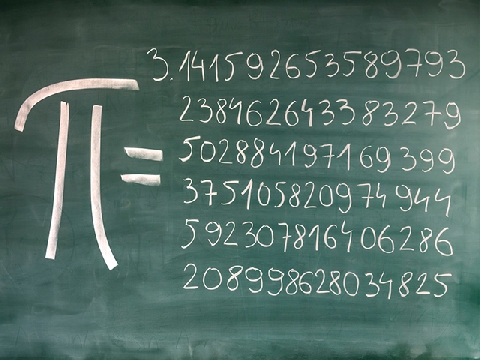 π=
3.141592653589793
238462643383279
502884197169399
375105820974944
592307816406286
208998628034825